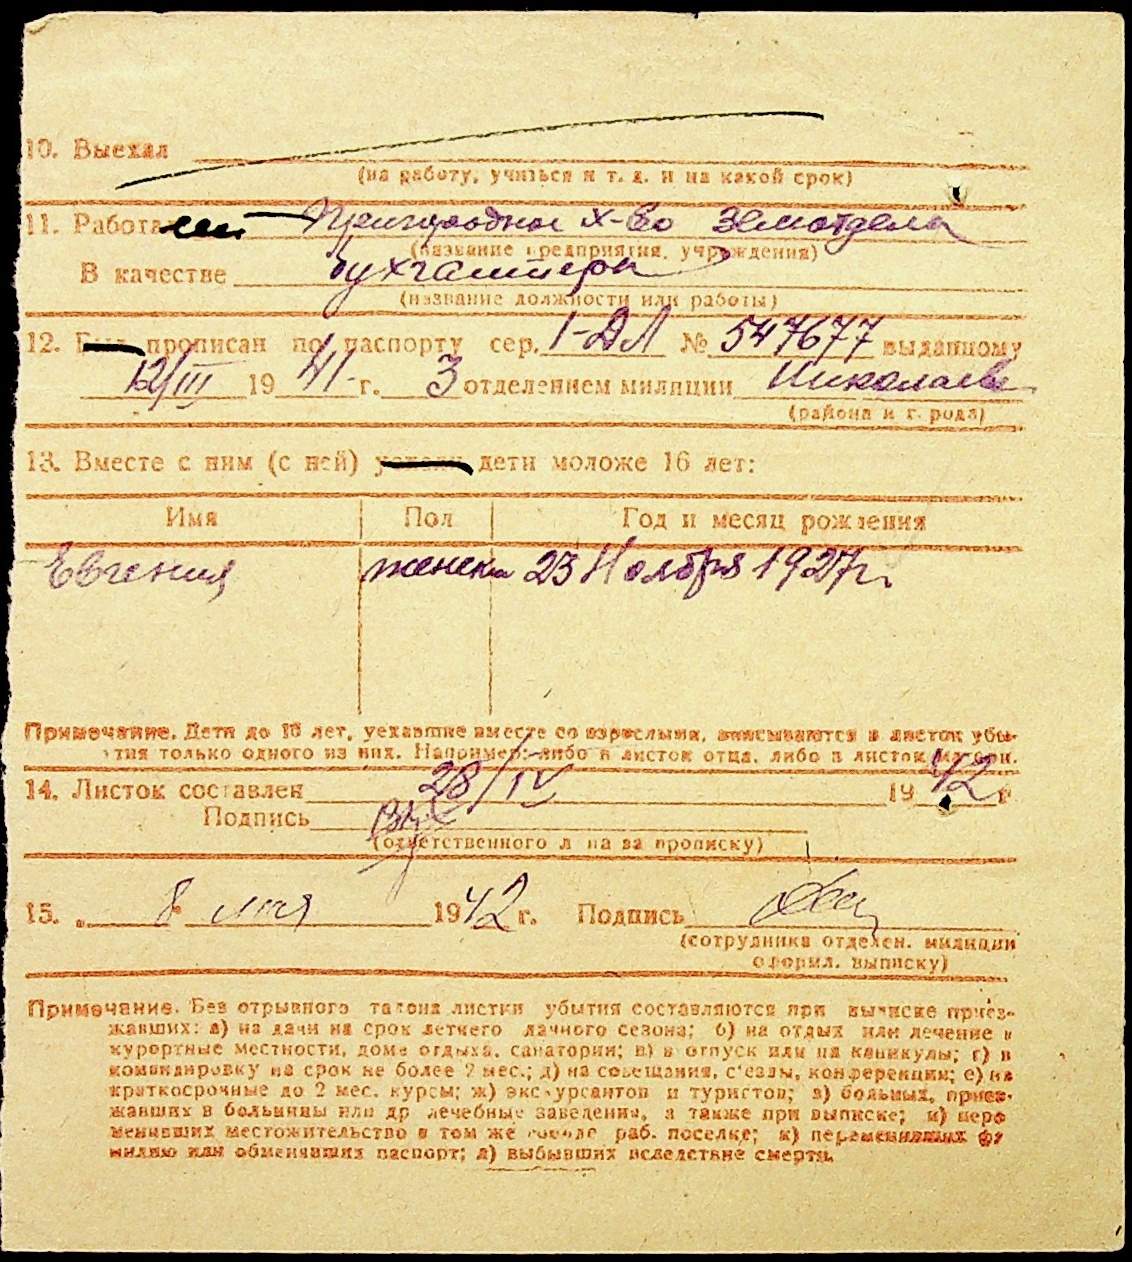 10. Выехал
(на работу, учиться и т. д. и на какой срок)
11. Работает Пригородное х-во Земотдела
(название предприятия, учреждения)
В качестве бухгалтера
(название должности или работы)
12. Был прописан по паспорту сер. I-ДЛ № 547677 выданному
12/III 1941 г. 3 отделением милиции Николаева
(района и города)
13. Вместе с ним (с ней) уехали дети моложе 16 лет:
Имя Пол Год и месяц рождения
Евгения женск 23 Ноября 1927 г.
Примечание. Дети до 16 лет, уехавшие вместе со взрослыми, вписываются в листок убы-
тия только одного из них. Например: либо в листок отца, либо в листок матери.
14. Листок составлен 28/IV 1942 г
Подпись
(ответственного лица за прописку)
15. „ 8 “ мая 1942 г. Подпись
(сотрудника отделен. милиции
оформл. выписку)
Примечание. Без отрывного талона листки убытия составляются при выписке приез-
жавших: а) на дачи на срок летнего дачного сезона; б) на отдых или лечение в
курортные местности, дома отдыха, санатории; в) в отпуск или на каникулы; г) в
командировку на срок не более 2 мес.; д) на совещания, с'езды, конференции; е) на
краткосрочные до 2 мес. курсы; ж) экскурсантов и туристов; з) больных, приез-
жавших в больницы или др лечебные заведения, а также при выписке; и) пере
менивших местожительство в том же городе раб. поселке; к) переменивших фа
милию или обменявших паспорт; л) выбывших вследствие смерти.